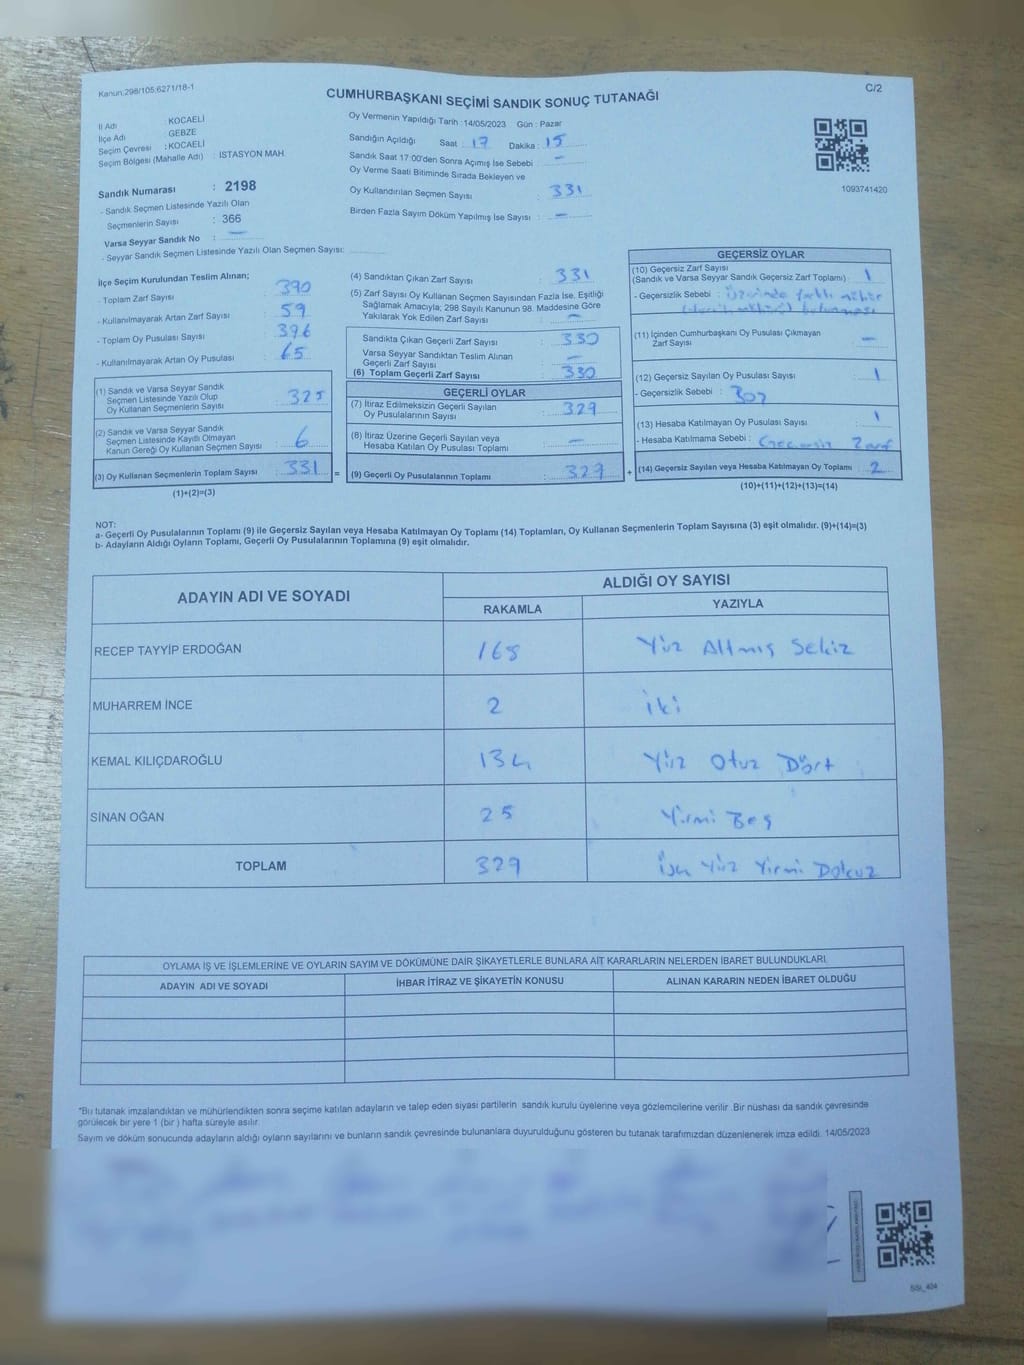 Kanun:298/105,6271/18-1
C/2
CUMHURBAŞKANI SEÇİMİ SANDIK SONUÇ TUTANAĞI
İl Adı : KOCAELİ
İlçe Adı : GEBZE
Seçim Çevresi : KOCAELİ
Seçim Bölgesi (Mahalle Adı) : İSTASYON MAH.
Sandık Numarası : 2198
- Sandık Seçmen Listesinde Yazılı Olan
Seçmenlerin Sayısı : 366
Varsa Seyyar Sandık No : —
- Seyyar Sandık Seçmen Listesinde Yazılı Olan Seçmen Sayısı:
Oy Vermenin Yapıldığı Tarih :14/05/2023 Gün : Pazar
Sandığın Açıldığı Saat : 17 Dakika : 15
Sandık Saat 17:00'den Sonra Açımış İse Sebebi : —
Oy Verme Saati Bitiminde Sırada Bekleyen ve
Oy Kullandırılan Seçmen Sayısı : 331
Birden Fazla Sayım Döküm Yapılmış İse Sayısı : —
1093741420
İlçe Seçim Kurulundan Teslim Alınan;
- Toplam Zarf Sayısı : 390
- Kullanılmayarak Artan Zarf Sayısı : 59
- Toplam Oy Pusulası Sayısı : 396
- Kullanılmayarak Artan Oy Pusulası : 65
(1) Sandık ve Varsa Seyyar Sandık
Seçmen Listesinde Yazılı Olup
Oy Kullanan Seçmenlerin Sayısı : 325
(2) Sandık ve Varsa Seyyar Sandık
Seçmen Listesinde Kayıtlı Olmayan
Kanun Gereği Oy Kullanan Seçmen Sayısı : 6
(3) Oy Kullanan Seçmenlerin Toplam Sayısı : 331 =
(1)+(2)=(3)
(4) Sandıktan Çıkan Zarf Sayısı : 331
(5) Zarf Sayısı Oy Kullanan Seçmen Sayısından Fazla İse, Eşitliği
Sağlamak Amacıyla; 298 Sayılı Kanunun 98. Maddesine Göre
Yakılarak Yok Edilen Zarf Sayısı : —
Sandıkta Çıkan Geçerli Zarf Sayısı : 330
Varsa Seyyar Sandıktan Teslim Alınan
Geçerli Zarf Sayısı : —
(6) Toplam Geçerli Zarf Sayısı : 330
GEÇERLİ OYLAR
(7) İtiraz Edilmeksizin Geçerli Sayılan
Oy Pusulalarının Sayısı : 329
(8) İtiraz Üzerine Geçerli Sayılan veya
Hesaba Katılan Oy Pusulası Toplamı : —
(9) Geçerli Oy Pusulalarının Toplamı : 329 +
GEÇERSİZ OYLAR
(10) Geçersiz Zarf Sayısı
(Sandık ve Varsa Seyyar Sandık Geçersiz Zarf Toplamı) : 1
- Geçersizlik Sebebi : Üzerinde farklı mühür
bulunması
(11) İçinden Cumhurbaşkanı Oy Pusulası Çıkmayan
Zarf Sayısı : —
(12) Geçersiz Sayılan Oy Pusulası Sayısı : 1
- Geçersizlik Sebebi : Boş
(13) Hesaba Katılmayan Oy Pusulası Sayısı : 1
- Hesaba Katılmama Sebebi : Geçersiz Zarf
(14) Geçersiz Sayılan veya Hesaba Katılmayan Oy Toplamı : 2
(10)+(11)+(12)+(13)=(14)
NOT:
a- Geçerli Oy Pusulalarının Toplamı (9) ile Geçersiz Sayılan veya Hesaba Katılmayan Oy Toplamı (14) Toplamları, Oy Kullanan Seçmenlerin Toplam Sayısına (3) eşit olmalıdır. (9)+(14)=(3)
b- Adayların Aldığı Oyların Toplamı, Geçerli Oy Pusulalarının Toplamına (9) eşit olmalıdır.
ADAYIN ADI VE SOYADI
ALDIĞI OY SAYISI
RAKAMLA YAZIYLA
RECEP TAYYİP ERDOĞAN 168 Yüz Altmış Sekiz
MUHARREM İNCE 2 iki
KEMAL KILIÇDAROĞLU 134 Yüz Otuz Dört
SİNAN OĞAN 25 Yirmi Beş
TOPLAM 329 Yüz Yirmi Dokuz
OYLAMA İŞ VE İŞLEMLERİNE VE OYLARIN SAYIM VE DÖKÜMÜNE DAİR ŞİKAYETLERLE BUNLARA AİT KARARLARIN NELERDEN İBARET BULUNDUKLARI
ADAYIN ADI VE SOYADI İHBAR İTİRAZ VE ŞİKAYETİN KONUSU ALINAN KARARIN NEDEN İBARET OLDUĞU
*Bu tutanak imzalandıktan ve mühürlendikten sonra seçime katılan adayların ve talep eden siyasi partilerin sandık kurulu üyelerine veya gözlemcilerine verilir .Bir nüshası da sandık çevresinde
görülecek bir yere 1 (bir ) hafta süreyle asılır.
Sayım ve döküm sonucunda adayların aldığı oyların sayılarını ve bunların sandık çevresinde bulunanlara duyurulduğunu gösteren bu tutanak tarafımızdan düzenlenerek imza edildi. 14/05/2023
SSI_404